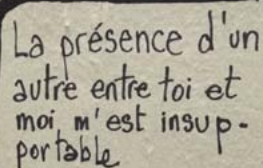 La présence d'un
autre entre toi et
moi m'est insup-
portable